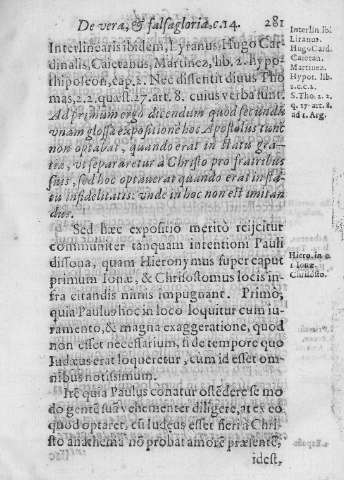 De vera, & falsa gloria, c. 14. 281
Interlinearis ibidem, Lyranus, Hugo Car-
dinalis, Caietanus, Martinez, lib. 2. hypot
hiposeon, cap. 2. Nec dissentit diuus Tho
mas, 2. 2. quæst. 27. art. 8. cuius verba sunt.
Ad primum ergo dicendum quod secundū
vnam glossæ expositionē hoc Apostolus tunc
non optabat, quando erat in statu gra-
tia, vt separaretur à Christo pro fratribus
suis, sed hoc optauerat quando erat in sta
tu infidelitatis: vnde in hoc non est imitan
dus.
Sed hæc expositio meritò reijcitur
communiter tanquam intentioni Pauli
dissona, quam Hieronymus super caput
primum Ionæ, & Chrisostomus locis in-
fra citandis nimis impugnant. Primò,
quia Paulus hoc in loco loquitur cum iu-
ramento, & magna exaggeratione, quod
non esset necessarium, si de tempore quo
Iudæus erat loqueretur, cum id esset om-
nibus notissimum.
Itē quia Paulus conatur ostēdere se mo
do gentē suā vehementer diligere, at ex eo
quod optaret, cū Iudeus esset fieri à Chri-
sto anathema nō probat amorē præsentē,
idest,
Interlin ibi
Liranus.
Hugo Card.
Caietan.
Martinez.
Hypot. lib.
2. c. 2.
S. Tho. 2. 2.
q. 27. art. 8.
ad 1. Arg.
Hiero. in c.
1 Ionæ.
Chrisosto.